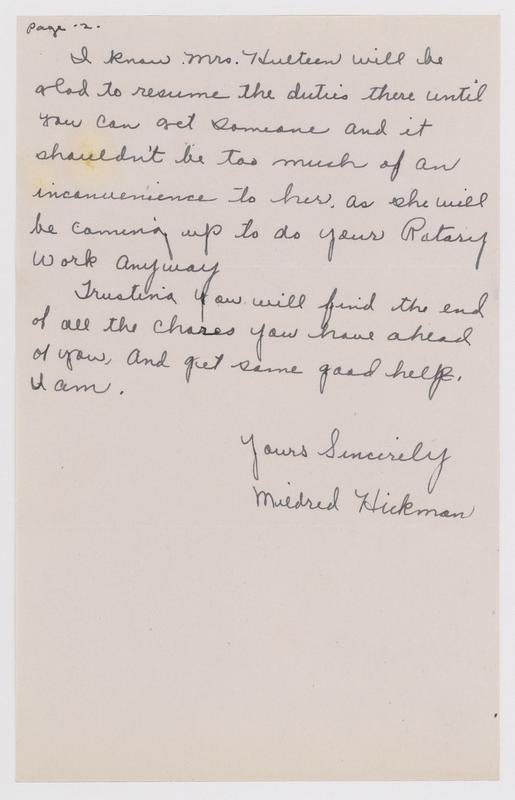 Page -2-
I know Mrs. Hulteen will be
glad to resume the duties there until
you can get someone and it
shouldn't be too much of an
inconvenience to her, as she will
be coming up to do your Rotary
Work anyway
Trusting you will find the end
of all the chores you have ahead
of you, and get some good help.
I am.
Yours Sincirely
Mildred Hickman